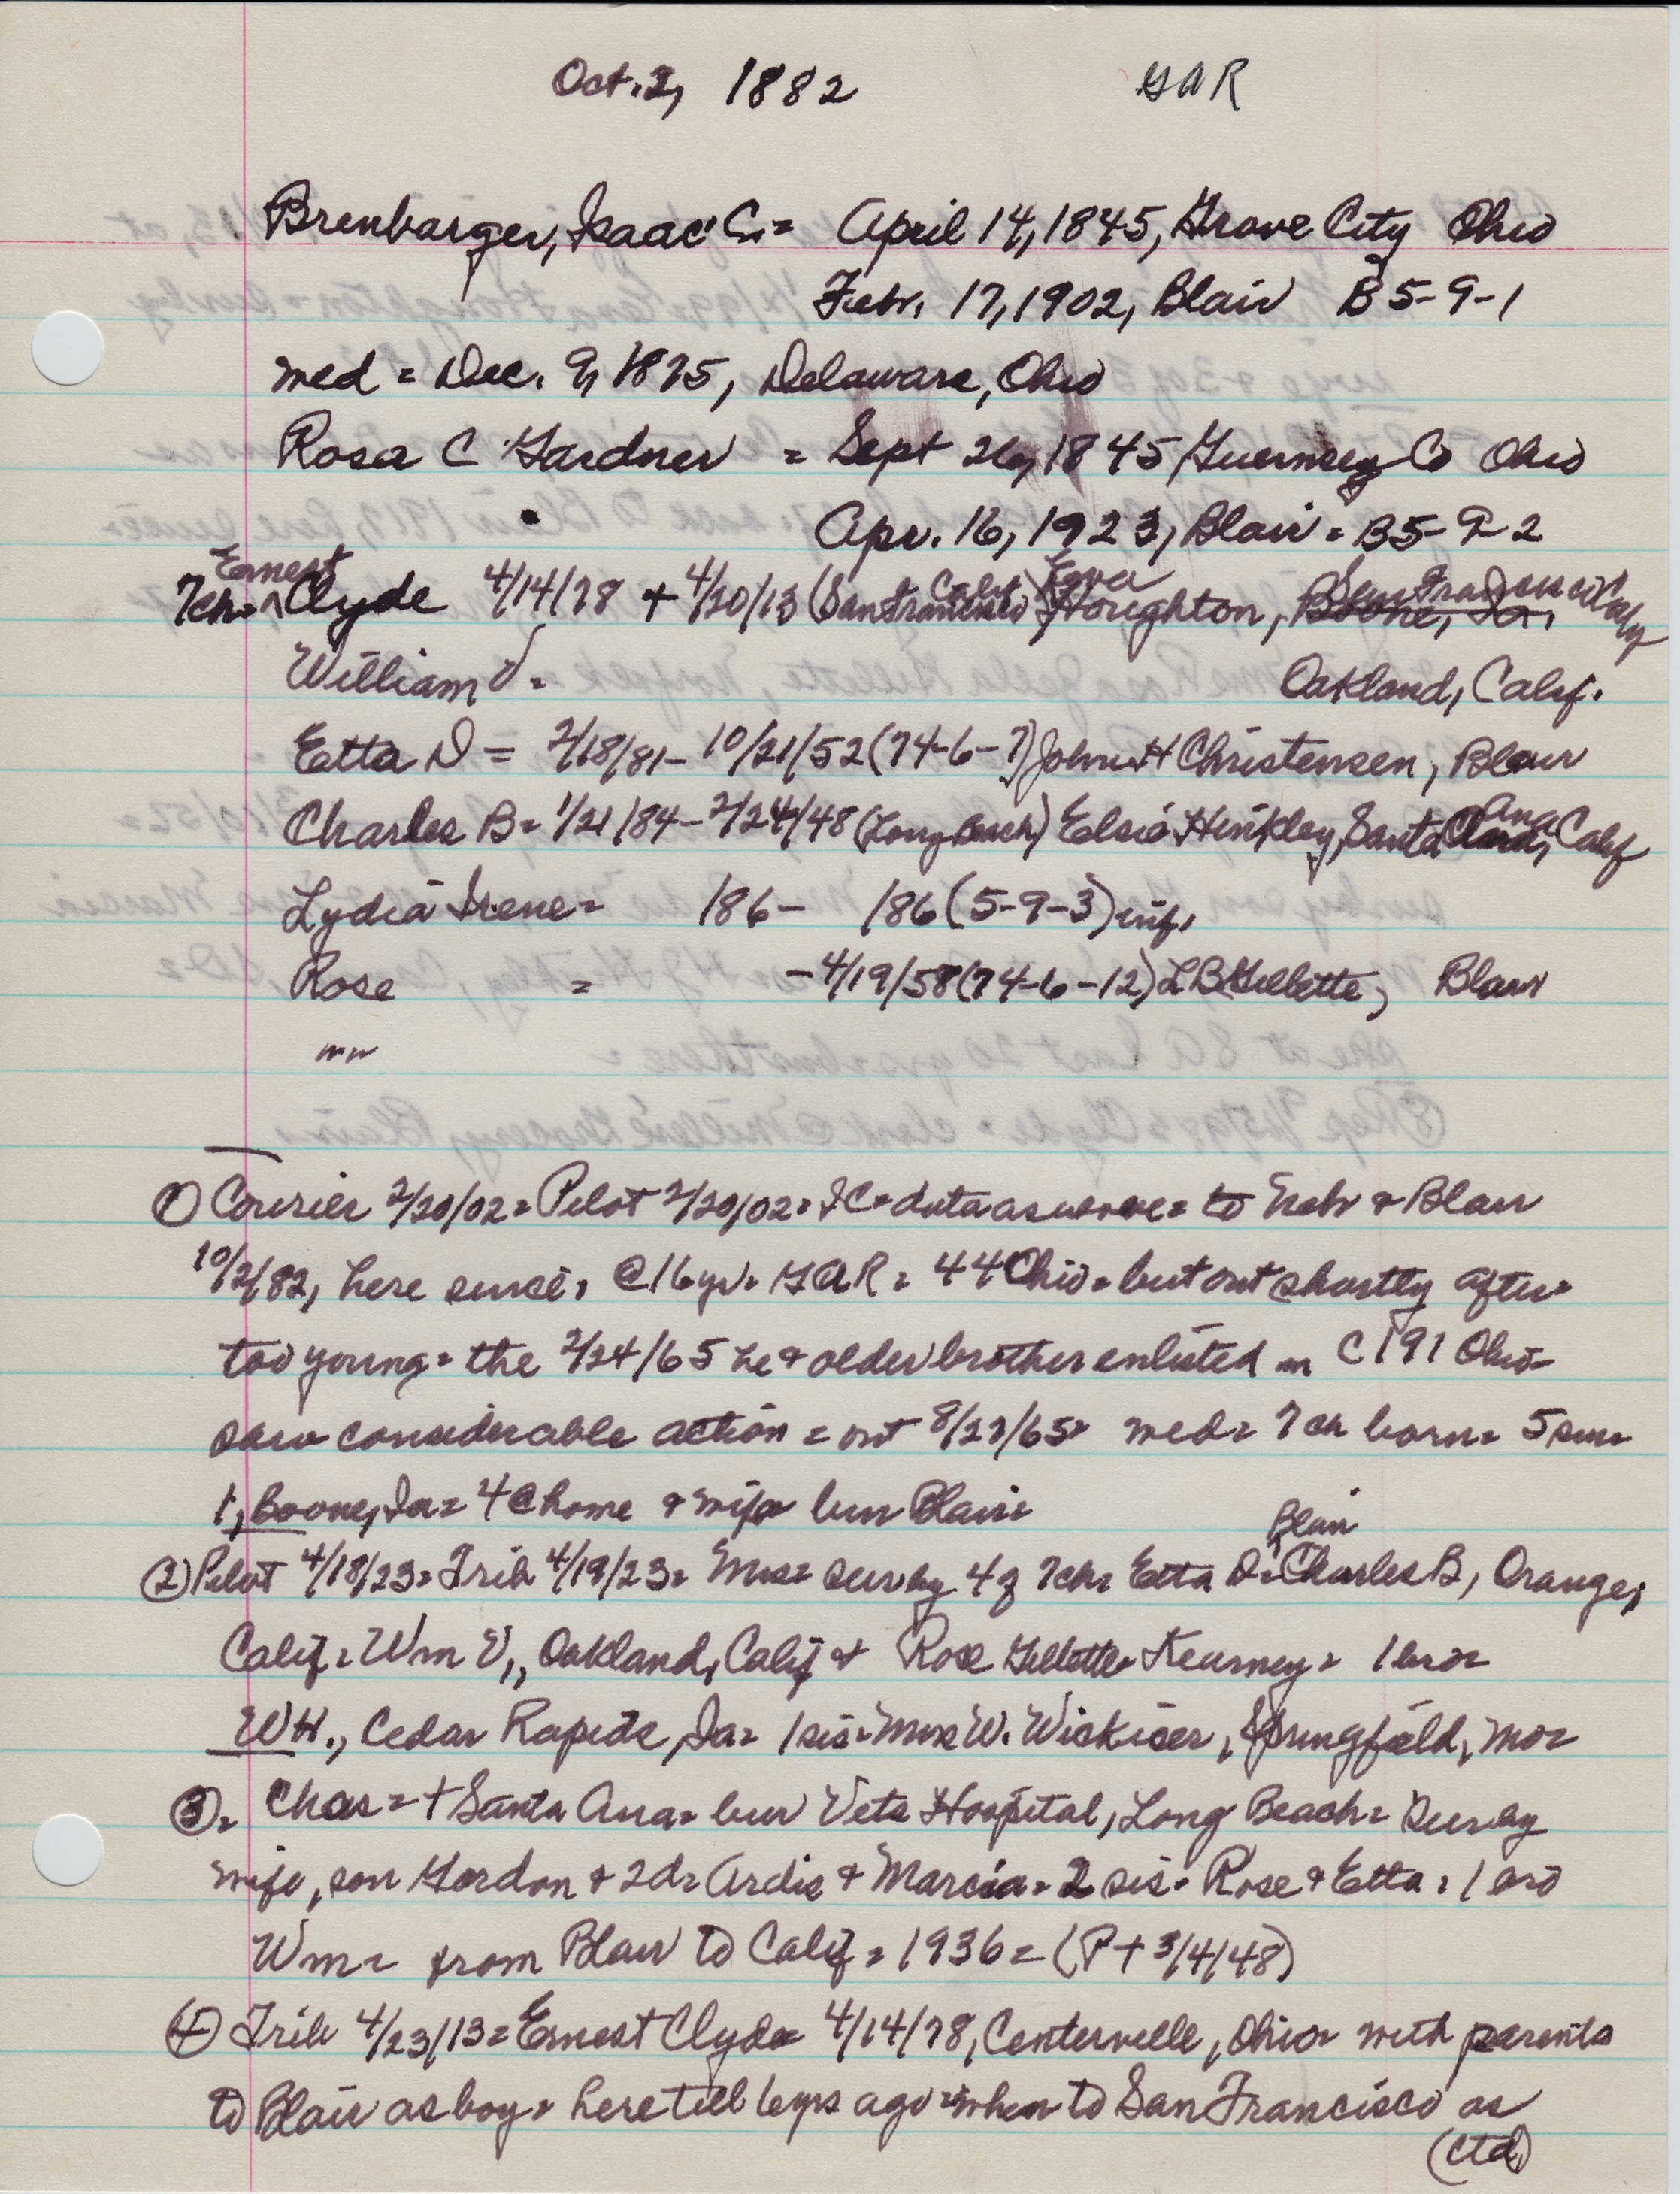 Oct. 2, 1882 GAR
Brenbarger, Isaac C. = April 14, 1845, Grove City Ohio
Febr. 17, 1902, Blair B 5-9-1
med = Dec. 9, 1875, Delaware, Ohio
Rosa C Gardner = Sept 26, 1845, Guernsey Co Ohio
Apr. 16, 1923, Blair = B5-9-2
Ernest Calif San Francisco Calif
7ch = ^Clyde 4/14/78 + 4/20/13 (San Francisco) Houghton, Boone, Ia.
William V = Oakland, Calif.
Etta D = 2/18/81 - 10/21/52 (74-6-7) John H Christensen, Blair
Ana
Charles B = 1/21/84 - 2/24/48 (Long Beach) Elsie Hinkley, Santa Clara, Calif
Lydia Irene = 186- 186 (5-9-3) inf.
Rose = - 4/19/58 (74-6-12) L B Gillette, Blair
① Courier 2/20/02 = Pilot 2/20/02 = IC = data as above = to Nebr & Blair
10/2/82, here since, @ 16 yr = GAR = 44 Ohio = but out shortly after =
too young = the 2/24/65 he & older brother enlisted in C 191 Ohio =
saw considerable action = out 8/27/65 = med = 7 ch born = 5 sur =
1, Boone, Ia = 4 @ home & wife bur Blair =
Blair
② Pilot 4/18/23 = Trib 4/19/23 = Mrs = sur by 4 of 7ch = Etta D = ^Charles B, Orange,
Calif = Wm V., Oakland, Calif & Rose Gillette = Kearney = 1 bro =
WH., Cedar Rapids, Ia = 1 sis = Mrs W. Wickiser, Springfield, Mo =
③ = Chas = + Santa Ana = bur Vets Hospital, Long Beach = Sur by
wife, son Gordon & 2d = Ardis & Marcia = 2 sis = Rose & Etta = 1 bro
Wm = from Blair to Calif = 1936 = (P + 3/4/48)
④ Trib 4/23/13 = Ernest Clyde 4/14/78, Centerville, Ohio = with parents
to Blair as boy = here till 6 yrs ago = when to San Francisco as
(ctd)